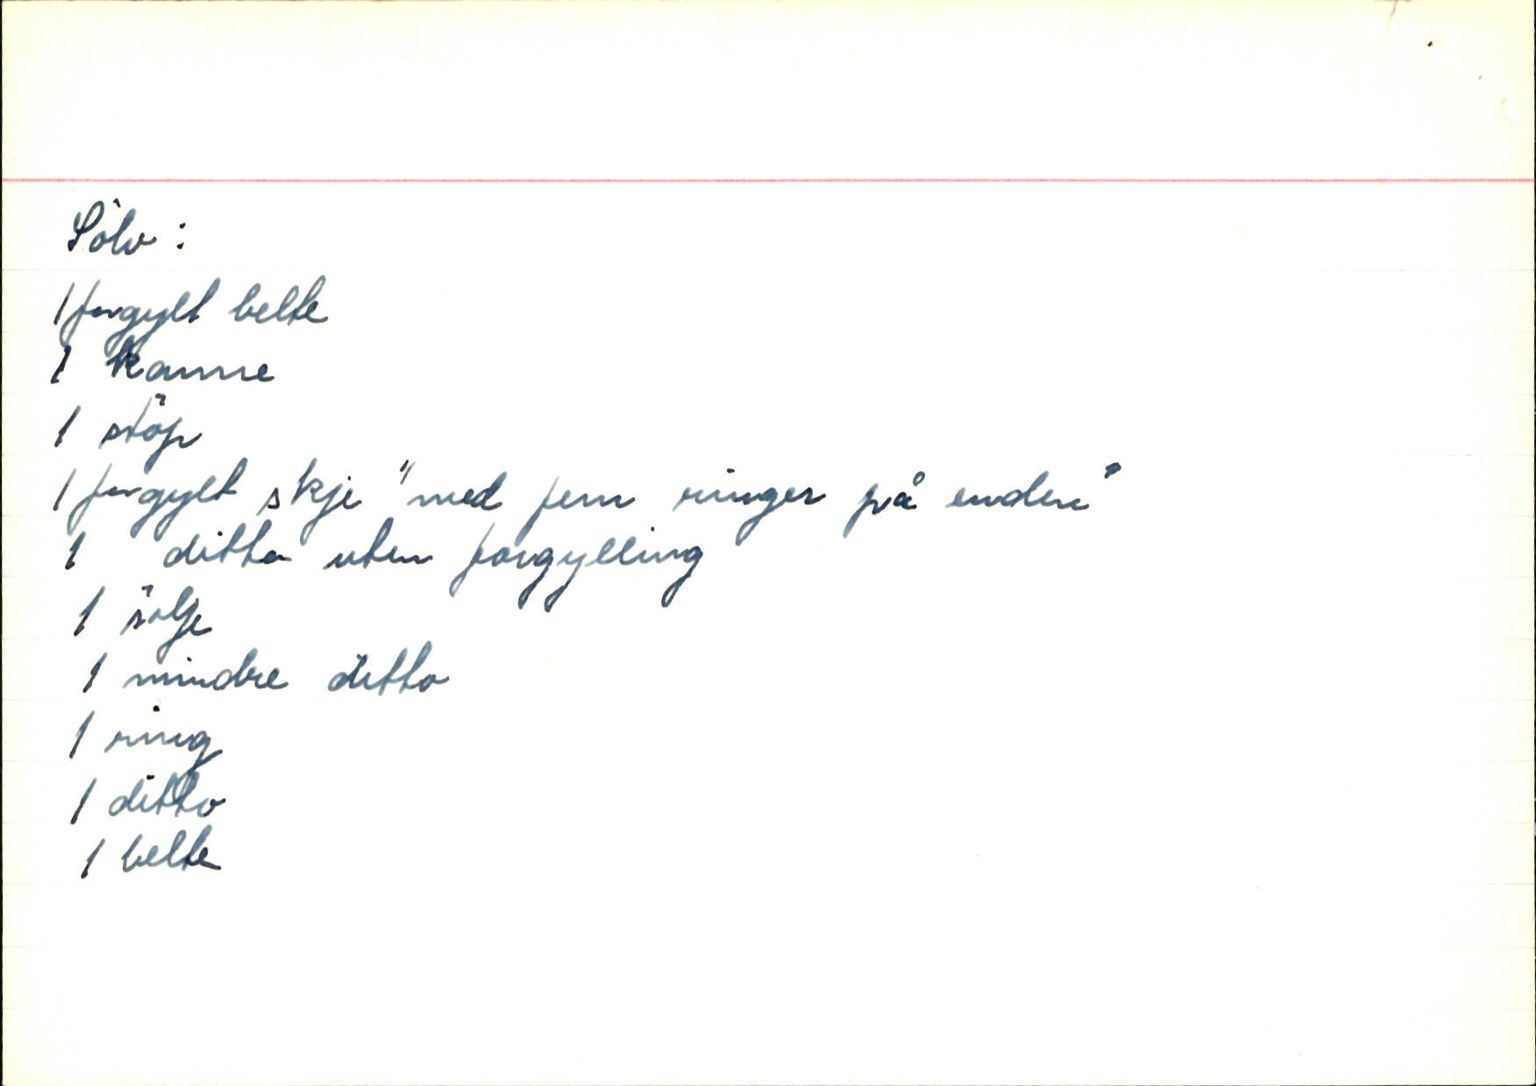 Sölv:
1 forgylt belte
1 kanne
1 stöp
1 forgylt skje "med fem ringer på enden"
1 ditto uten forgylling
1 sölje
1 mindre ditto
1 ring
1 ditto
1 belte